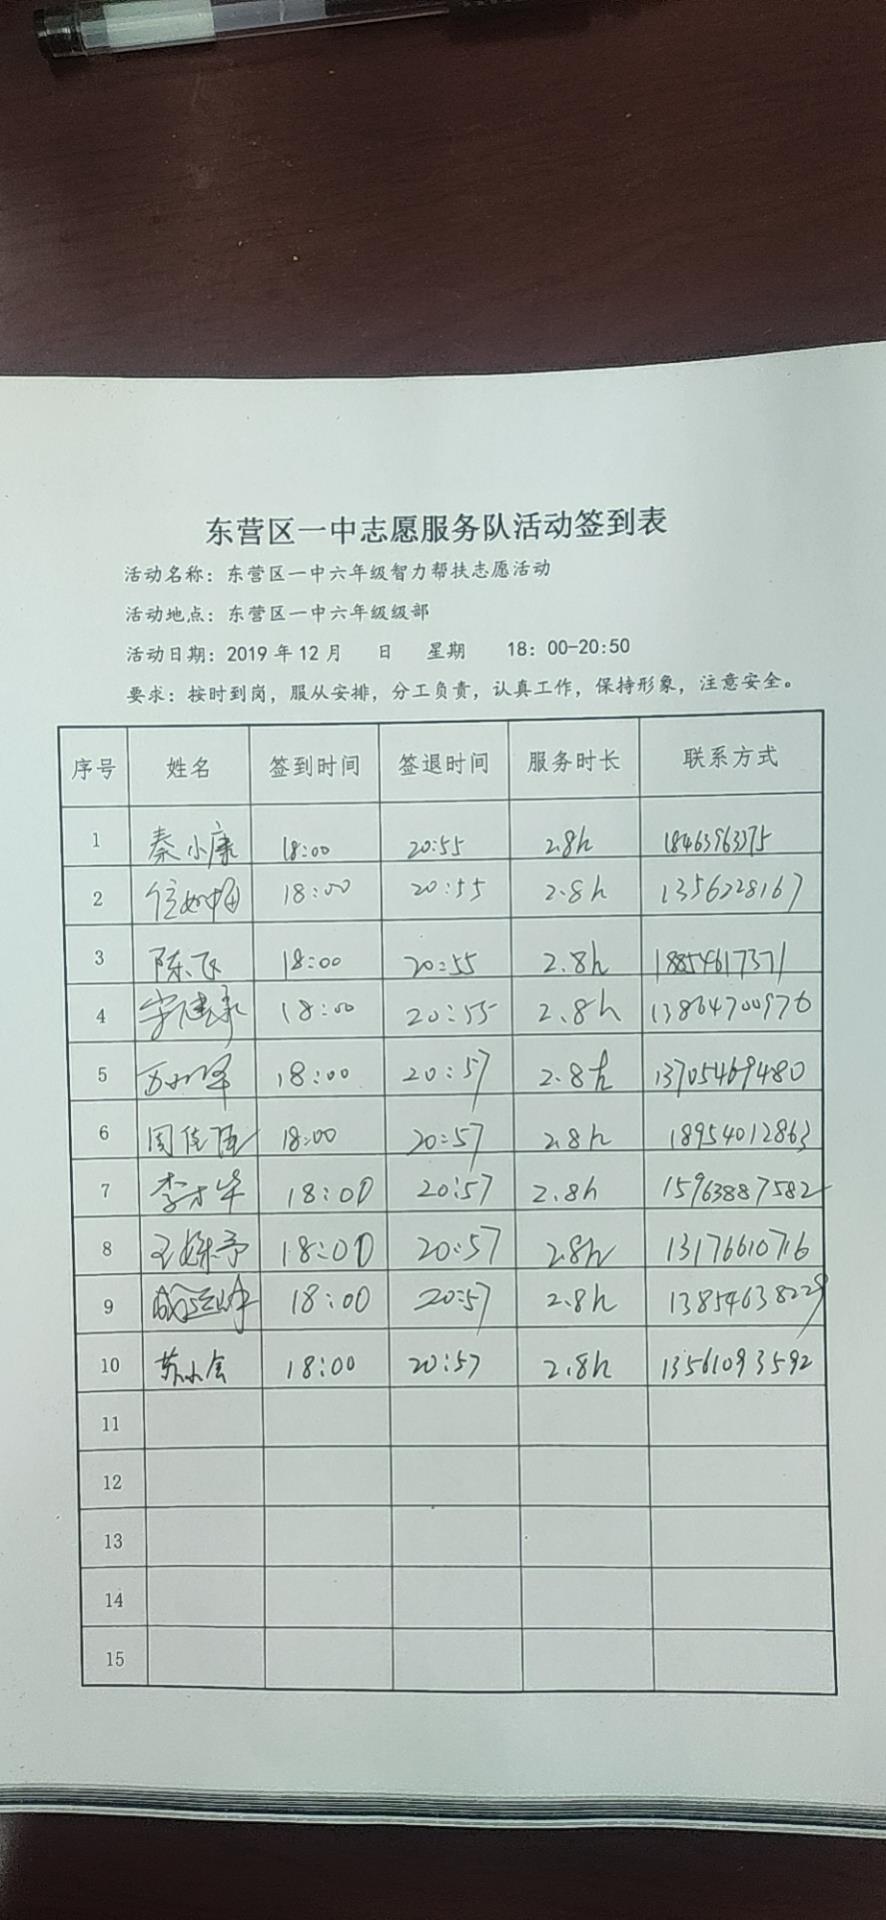 东营区一中志愿服务队活动签到表
活动名称：东营区一中六年级智力帮扶志愿活动
活动地点：东营区一中六年级级部
活动日期：2019年12月 日 星期 18：00-20:50
要求：按时到岗，服从安排，分工负责，认真工作，保持形象，注意安全。
序号 姓名 签到时间 签退时间 服务时长 联系方式
1 秦小康 18:00 20:55 2.8h 18463963375
2 18:00 20:55 2.8h 1356228167
3 陈飞 18:00 20:55 2.8h 18854617371
4 18:00 20:55 2.8h 13864700976
5 18:00 20:57 2.8h 13705469480
6 18:00 20:57 2.8h 18954012863
7 李才华 18:00 20:57 2.8h 15963887582
8 18:00 20:57 2.8h 13176610716
9 18:00 20:57 2.8h 13854638229
10 18:00 20:57 2.8h 13561093592
11
12
13
14
15